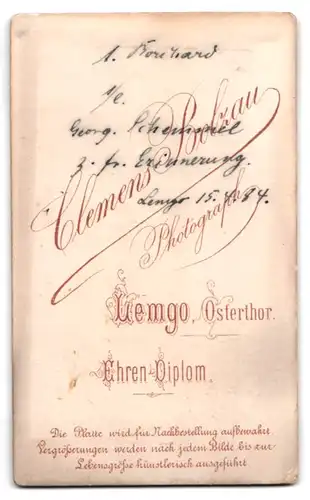 1. Borchard
s/l.
Georg. Schemmel
z. fr. Erinnerung.
Lemgo 15.4.84.
Clemens Bolzau
Photograph
Lemgo, Osterthor.
Ehren-Diplom.
Die Platte wird für Nachbestellung aufbewahrt.
Vergrößerungen werden nach jedem Bilde bis zur
Lebensgröße künstlerisch ausgeführt.